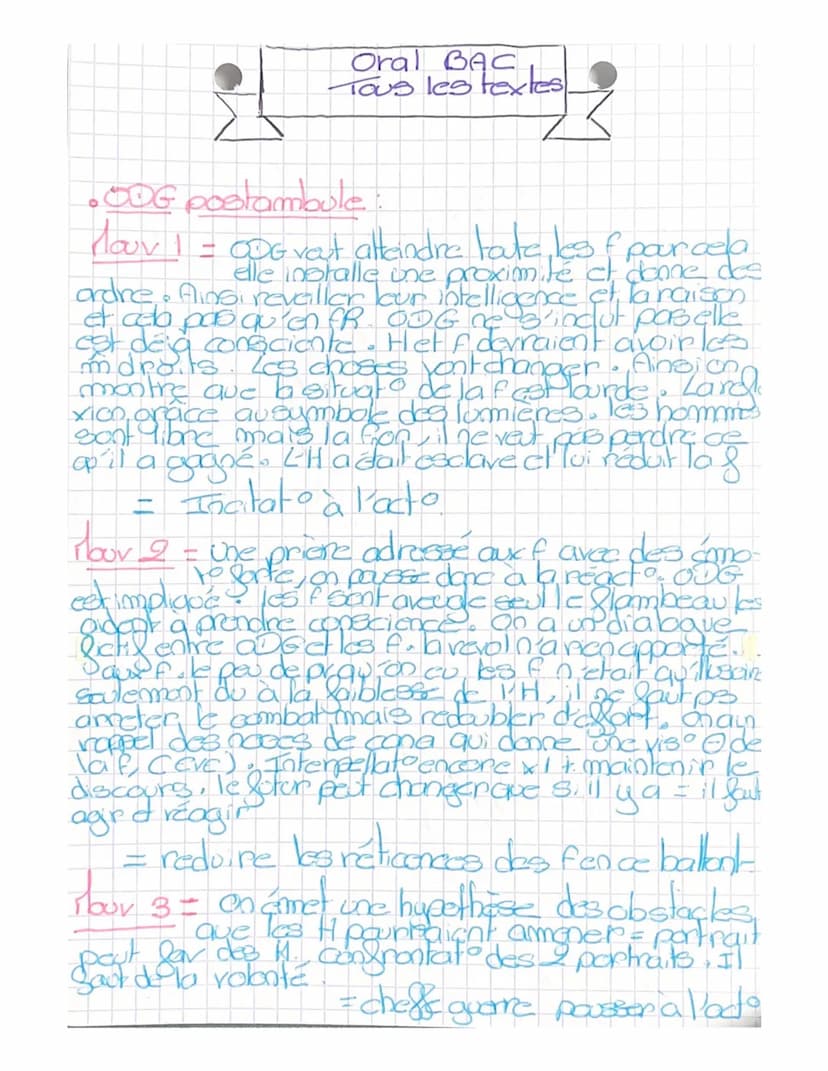 Oral BAC
Tous les textes
. ODG postambule :
Mouv 1 = ODG veut atteindre toute les f pour cela
elle installe une proximité et donne des
ordre. Ainsi reveiller leur intelligence et la raison
et cela pas qu'en FR. ODG ne s'inclut pas elle
est déjà consciente. H et f devraient avoir les
m droits. Les choses vont changer. Ainsi on
montre que la situat° de la f est lourde. La refle
xion grâce au symbole des lumières. les hommes
sont libre mais la f non, il ne veut pas perdre ce
qu'il a gagné. L'H a était esclave et lui réduit la f
= Incitat° à l'act°
Mouv 2 = une prière adressé aux f avec des émo-
t° forte, on pousse donc à la réact°. ODG
est impliqué. les f sont aveugle seul le flambeau les
aident a prendre conscience. On a un dialogue
fictif entre ODG et les f. la revol n'a rien apporté.
Sauf f. le peu de pouv
les f n'était qu'illusoire
seulement du à la faiblesse de l'H, il ne faut pas
arreter le combat mais redoubler d'effort. on a un
rappel des noces de cana qui donne une vis° ⊖ de
la f, (Eve). Interpellat° encore x1 + maintenir le
discours. le futur peut changer que s'il y a = il faut
agir et réagir
= reduire les réticences des f en ce ballant
Mouv 3 = On émet une hypothèse des obstacles
que les H pourraient ammener = portrait
peut fav des H. confrontat° des 2 portraits. Il
faut de la volonté.
= cheffe guerre pousser à l'act°